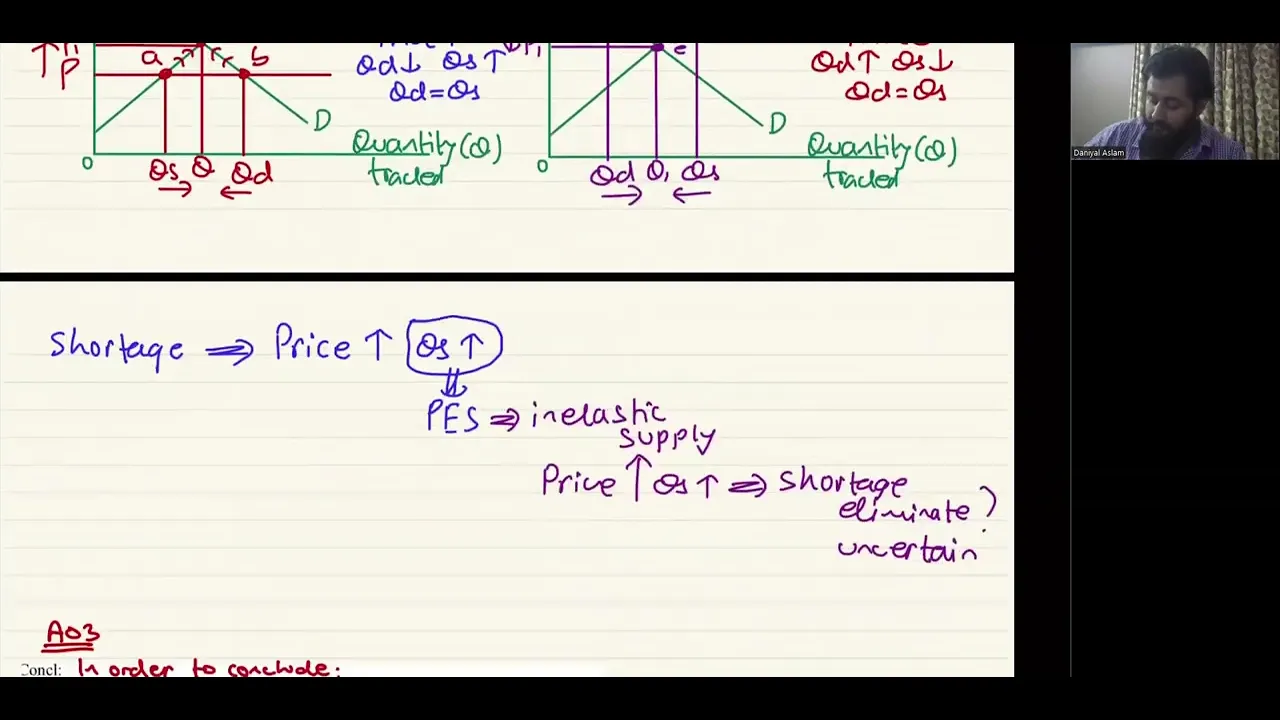 a b
↑ P
Qd↓ Qs↑
Qd = Qs
D
Quantity (Q)
traded
0
Qs Q Qd
→ ←
P₁ e
Qd↑ Qs↓
Qd = Qs
D
Quantity (Q)
traded
0
Qd Q₁ Qs
→ ←
Shortage ⇒ Price ↑ Qs ↑
PES ⇒ inelastic
supply
Price ↑ Qs ↑ ⇒ Shortage
eliminate ?
uncertain
A03
Concl: In order to conclude:
Daniyal Aslam